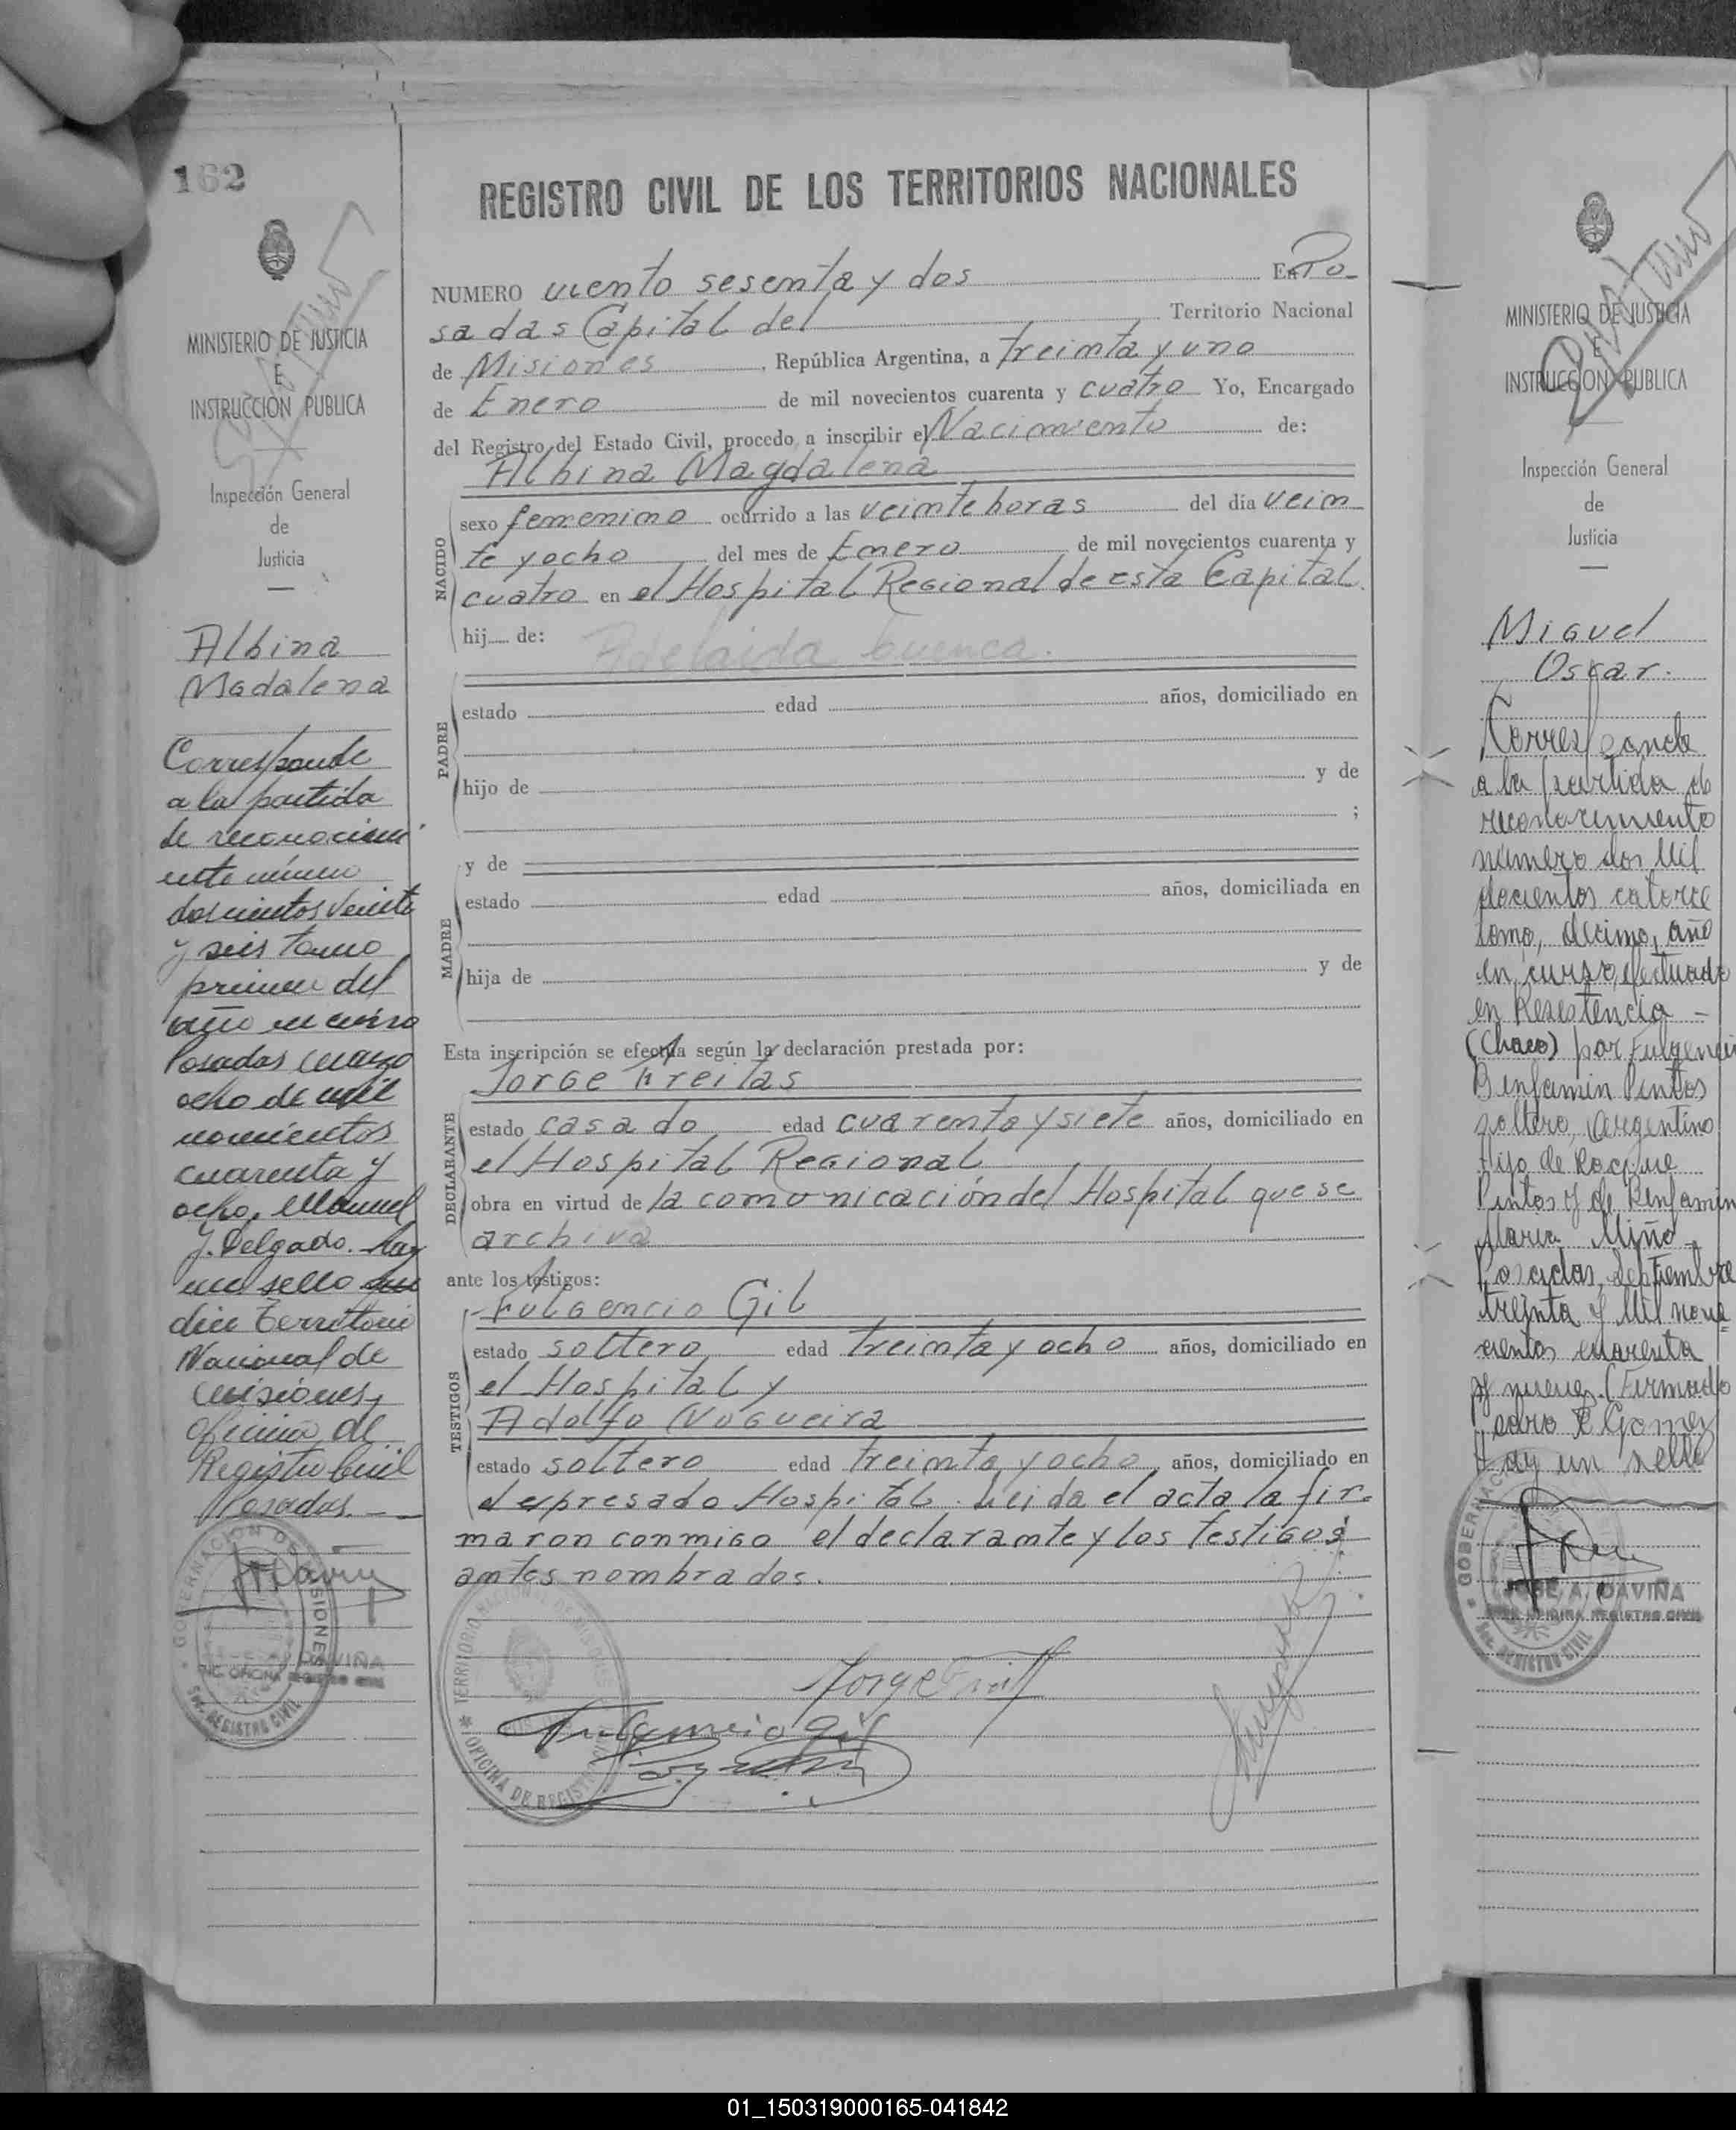 162
MINISTERIO DE JUSTICIA
E
INSTRUCCION PUBLICA
Inspección General
de
Justicia
Albina
Madalena
Corresponde
a la partida
de reconocimi
ento número
doscientos veinte
y seis tomo
primero del
año en curso
Posadas marzo
ocho de mil
novecientos
cuarenta y
ocho. Manuel
J. Delgado. Hay
un sello que
dice Territorio
Nacional de
Misiones,
oficina de
Registro Civil
Posadas.
GOBERNACION DE MISIONES
Sec. REGISTRO CIVIL
REGISTRO CIVIL DE LOS TERRITORIOS NACIONALES
NUMERO ciento sesenta y dos En Po
sadas Capital del Territorio Nacional
de Misiones, República Argentina, a treinta y uno
de Enero de mil novecientos cuarenta y cuatro Yo, Encargado
del Registro del Estado Civil, procedo a inscribir el Nacimiento de:
Albina Magdalena
NACIDO
sexo femenino ocurrido a las veinte horas del día vein
te y ocho del mes de Enero de mil novecientos cuarenta y
cuatro en el Hospital Regional de esta Capital.
hij de: Adelaida Cuenca.
PADRE
estado edad años, domiciliado en
hijo de y de
;
y de
MADRE
estado edad años, domiciliada en
hija de y de
Esta inscripción se efectúa según la declaración prestada por:
Jorge Freitas
DECLARANTE
estado casado edad cuarenta y siete años, domiciliado en
el Hospital Regional
obra en virtud de la comunicación del Hospital que se
archiva
ante los testigos:
Fulgencio Gil
TESTIGOS
estado soltero edad treinta y ocho años, domiciliado en
el Hospital y
Adolfo Nogueira
estado soltero edad treinta y ocho años, domiciliado en
el expresado Hospital. Leida el acta la fir-
maron conmigo el declarante y los testigos
antes nombrados.
TERRITORIO NACIONAL DE MISIONES
OFICINA DE REGISTRO CIVIL
Jorge Freit
Fulgencio Gil
MINISTERIO DE JUSTICIA
E
INSTRUCCION PUBLICA
Inspección General
de
Justicia
Miguel
Oscar.
Corresponde
a la partida de
reconocimiento
número dos mil
docientos catorce
tomo, décimo, año
en curso, efectuado
en Resistencia
(Chaco) por Fulgencio
Benjamin Pintos
soltero, Argentino
hijo de Roque
Pintos y de Benjamin
Maria Miño
Posadas, Septiembre
treinta y Mil nove
cientos cuarenta
y nueve. (Firmado
Pedro E Gomez
Hay un sello
GOBERNAC
JOSE A. DAVIÑA
ENC. OFICINA REGISTRO CIVIL
Sec. REGISTRO CIVIL
01_150319000165-041842